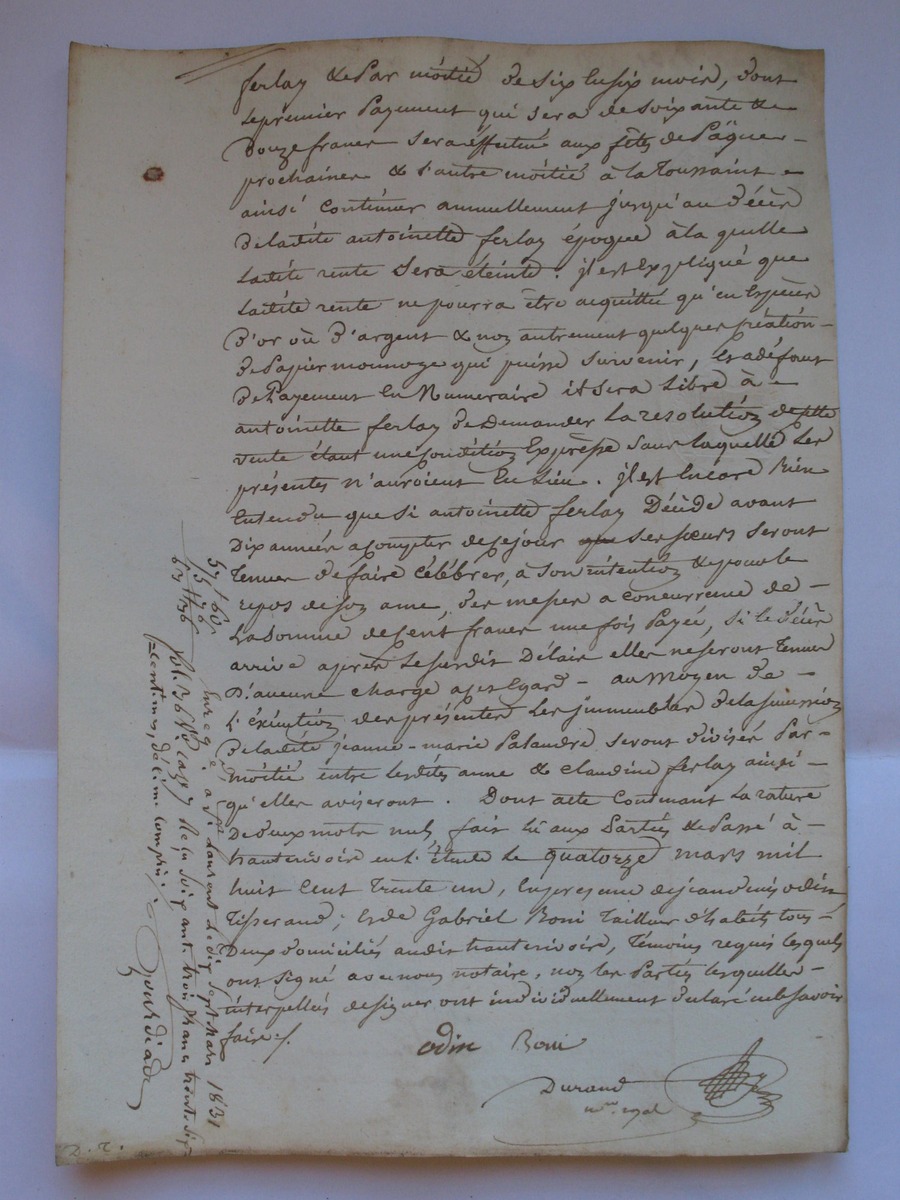 ferlay & par moitié de six en six mois, dont
le premier payement qui sera de soixante &
Douze francs sera éffectué aux fêtes de Pâques
prochaines & l'autre moitié à la toussaint &
ainsi continuer annuellement jusqu'au décès
De ladite antoinette ferlay époque à la quelle
ladite rente sera éteinte. il est expliqué que
ladite rente ne pourra être acquittée qu'en Espèces
D'or où D'argent & non autrement quelques création
De papier monnoye qui puisse survenir, et à défaut
De payement en Numeraire il sera libre à
antoinette ferlay de Demander la resolution de cette
vente étant une condition Expresse sans laquelle les
présentes n'auroient eu lieu. il est encore bien
Entendu que si antoinette ferlay Décède avant
Dix années a compter de ce jour ses sœurs seront
tenues de faire célébrer, à son intention & pour le
repos de son ame, des messes a concurrence de
la somme de cent francs une fois payée, si le décès
arrive après le susdit Délais elles ne seront tenues
D'aucune charge a cet égard - au moyen de
L'éxécution des présentes les immeubles de la succession
De ladite jeanne-marie Palandre seront divisés par
moitié entre lesdites anne & claudine ferlay ainsi
qu'elles aviseront. Dont acte contenant la rature
De deux mots nuls, fait lu aux parties & passé à
hauterivoire en l'étude le quatorze mars mil
huit cent trente un, en présence de jean denis odin
Tisserand, et de Gabriel Boni tailleur d'habits tous
Deux domiciliés audit hauterivoire, témoins requis lesquels
ont signé avec nous notaire, non les parties lesquelles
interpellés de signer ont individuellement déclaré ne le savoir
faire ./.
odin Boni
Durand
nre royal
57 f 60
5 76
63 f 36
Enregé à St Laurent le dix sept mars 1831
fol. 36 Vo case 7 Reçu soixante trois francs trente six
centimes, décime compris.
D. T.